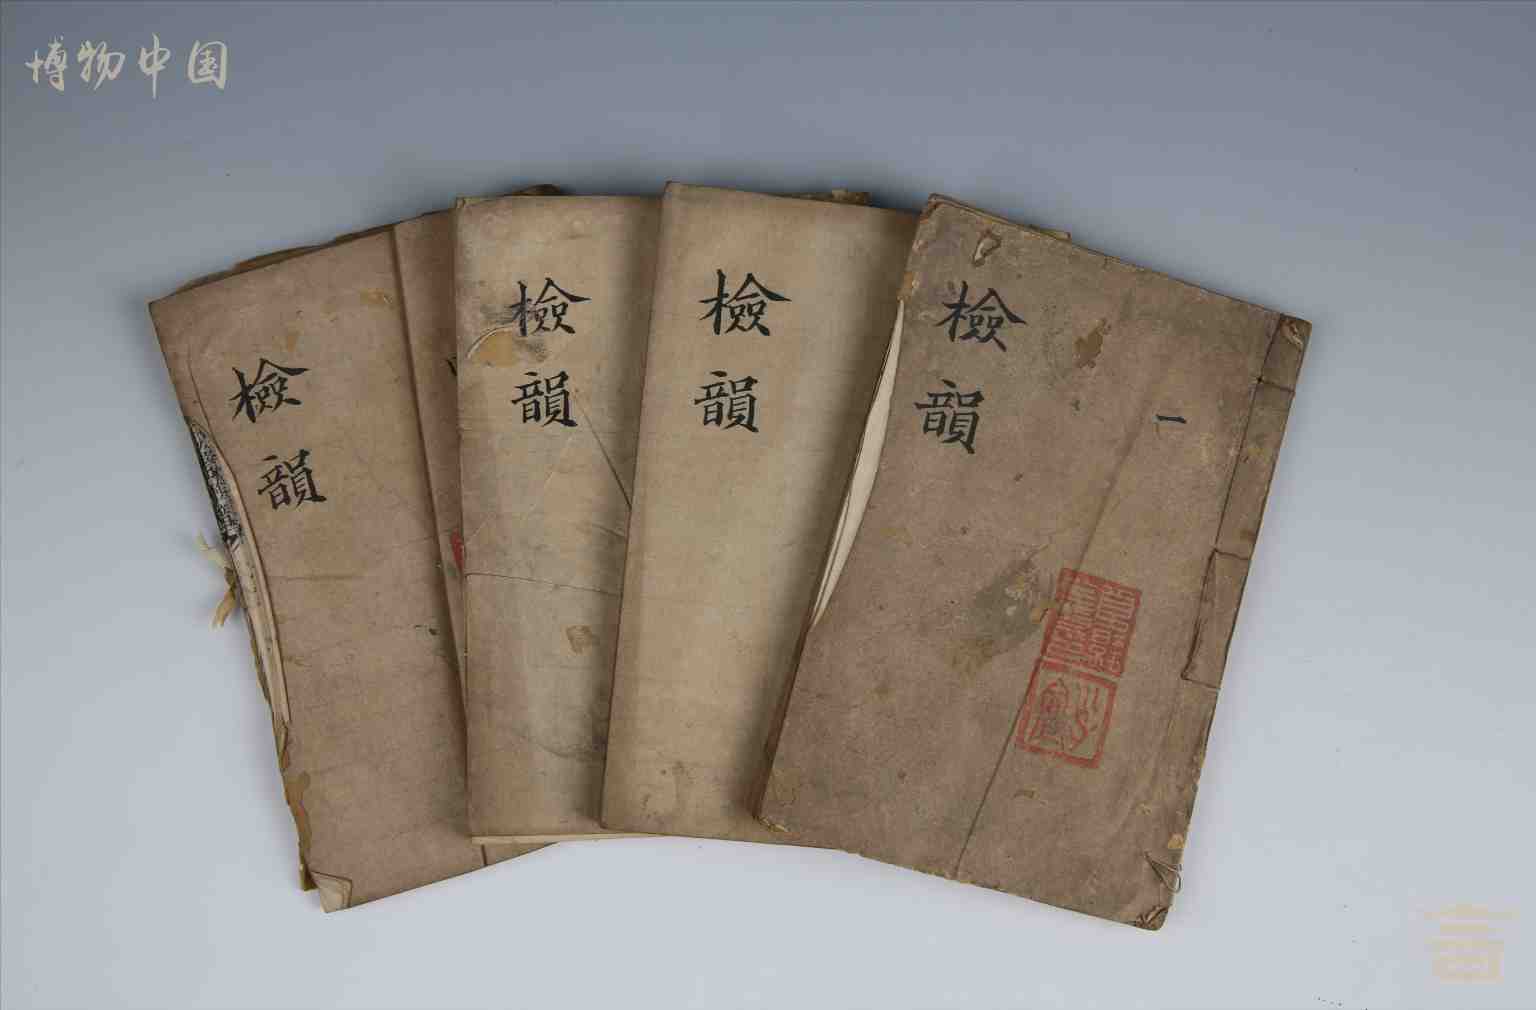 博物中国
檢韻
檢韻
檢韻
檢韻
一